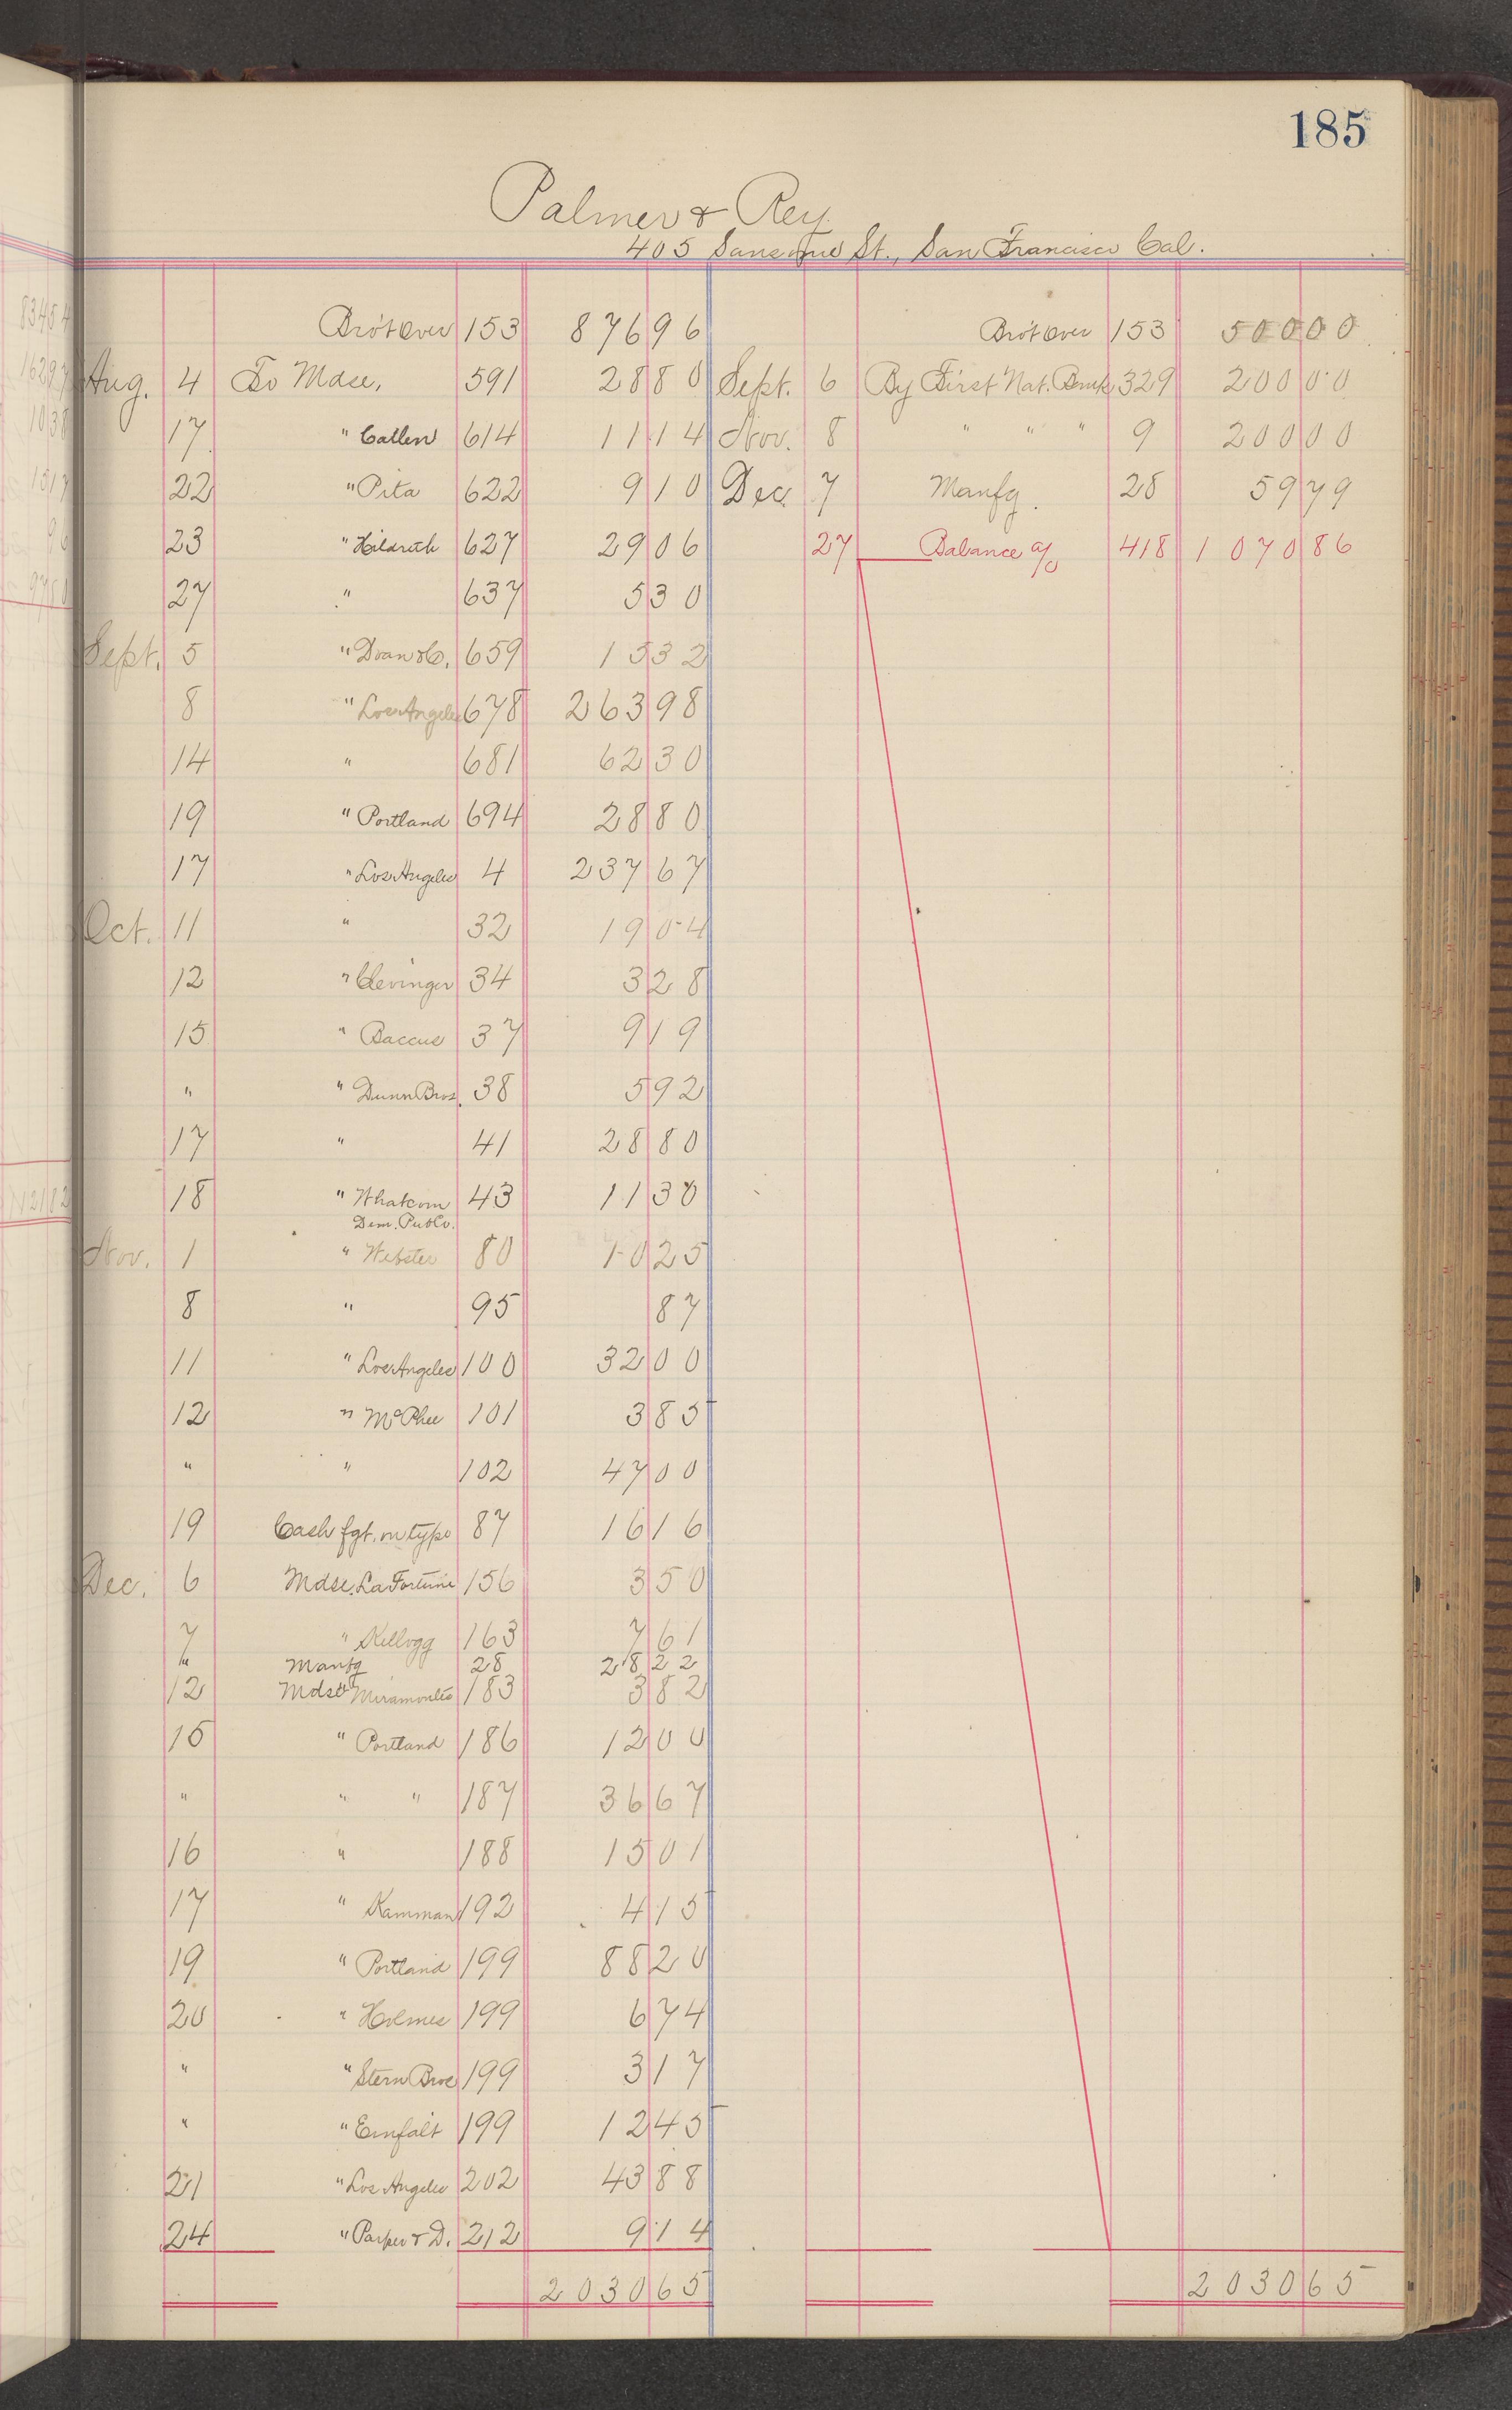 185
Palmer & Rey
405 Sansome St., San Francisco Cal.
Bro't Over 153 876 96 Bro't Over 153 500 00
Aug. 4 To Mdse, 591 28 80 Sept. 6 By First Nat. Bank 329 200 00
17 " Callen 614 11 14 Nov. 8 " " " 9 200 00
22 " Pita 622 9 10 Dec. 7 Manfg. 28 59 79
23 " Hildreth 627 29 06 27 Balance a/c 418 1 070 86
27 " 637 5 30
Sept. 5 " Doan & Co. 659 15 32
8 " Los Angeles 678 263 98
14 " 681 62 30
19 " Portland 694 28 80
17 " Los Angeles 4 237 67
Oct. 11 " 32 19 04
12 " Clevinger 34 3 28
15 " Baccus 37 9 19
" " Dunn Bros. 38 5 92
17 " 41 28 80
18 " Whatcom 43 11 30
Dem. Pub Co.
Nov. 1 " Webster 80 10 25
8 " 95 87
11 " Los Angeles 100 32 00
12 " McPhee 101 3 85
" " 102 47 00
19 Cash fgt. on type 87 16 16
Dec. 6 Mdse. La Fortune 156 3 50
7 " Kellogg 163 7 61
" Manfg 28 28 22
12 Mdse Miramontes 183 3 82
15 " Portland 186 12 00
" " " 187 36 67
16 " 188 15 01
17 " Kamman 192 4 15
19 " Portland 199 88 20
20 " Holmes 199 6 74
" " Stern Bros 199 3 17
" " Emfalt 199 12 45
21 " Los Angeles 202 43 88
24 " Parker & D. 212 9 14
2 030 65 2 030 65